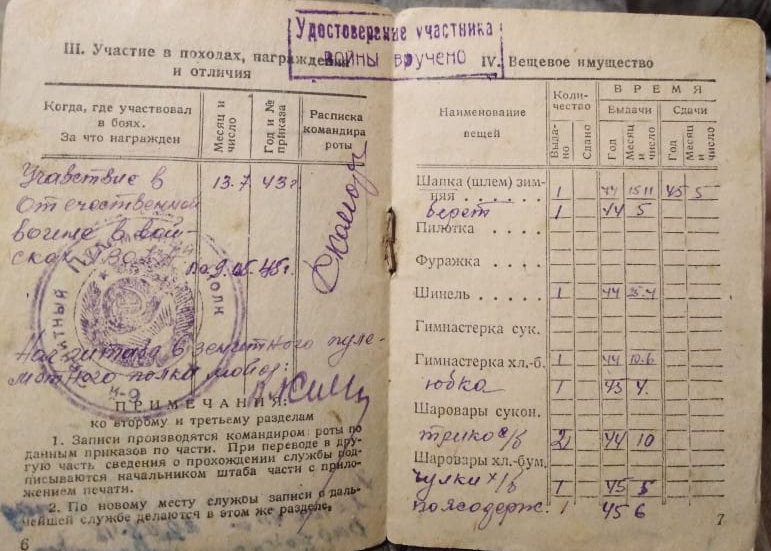 Удостоверение участника
войны вручено
III. Участие в походах, награждения
и отличия
Когда, где участвовал
в боях.
За что награжден
Месяц и
число
Год и №
приказа
Расписка
командира
роты
Отечественной
13.7. 43 г.
по 9.05.45г.
Нач. штаба 6 зенитного пуле-
метного полка майор:
ПРИМЕЧАНИЯ:
ко второму и третьему разделам
1. Записи производятся командиром роты по
данным приказов по части. При переводе в дру-
гую часть сведения о прохождении службы под-
писываются начальником штаба части с прило-
жением печати.
2. По новому месту службы записи о даль-
нейшей службе делаются в этом же разделе.
6
IV. Вещевое имущество
Наименование
вещей
Коли-
чество
ВРЕМЯ
Выдачи
Сдачи
Выда-
но
Сдано
Год
Месяц
и
число
Год
Месяц
и
число
Шапка (шлем) зим-
няя . . . . . . 1 44 15 11 45 5
берет 1 44 5
Пилотка . . . .
Фуражка . . . .
Шинель . . . . . 1 44 25.4
Гимнастерка сук.
Гимнастерка хл.-б. 1 44 10.6
юбка 1 45 4.
Шаровары сукон.
трико х/б 2 44 10
Шаровары хл.-бум.
чулки х/б 1 45 5
поясодерж. 1 45 6
7